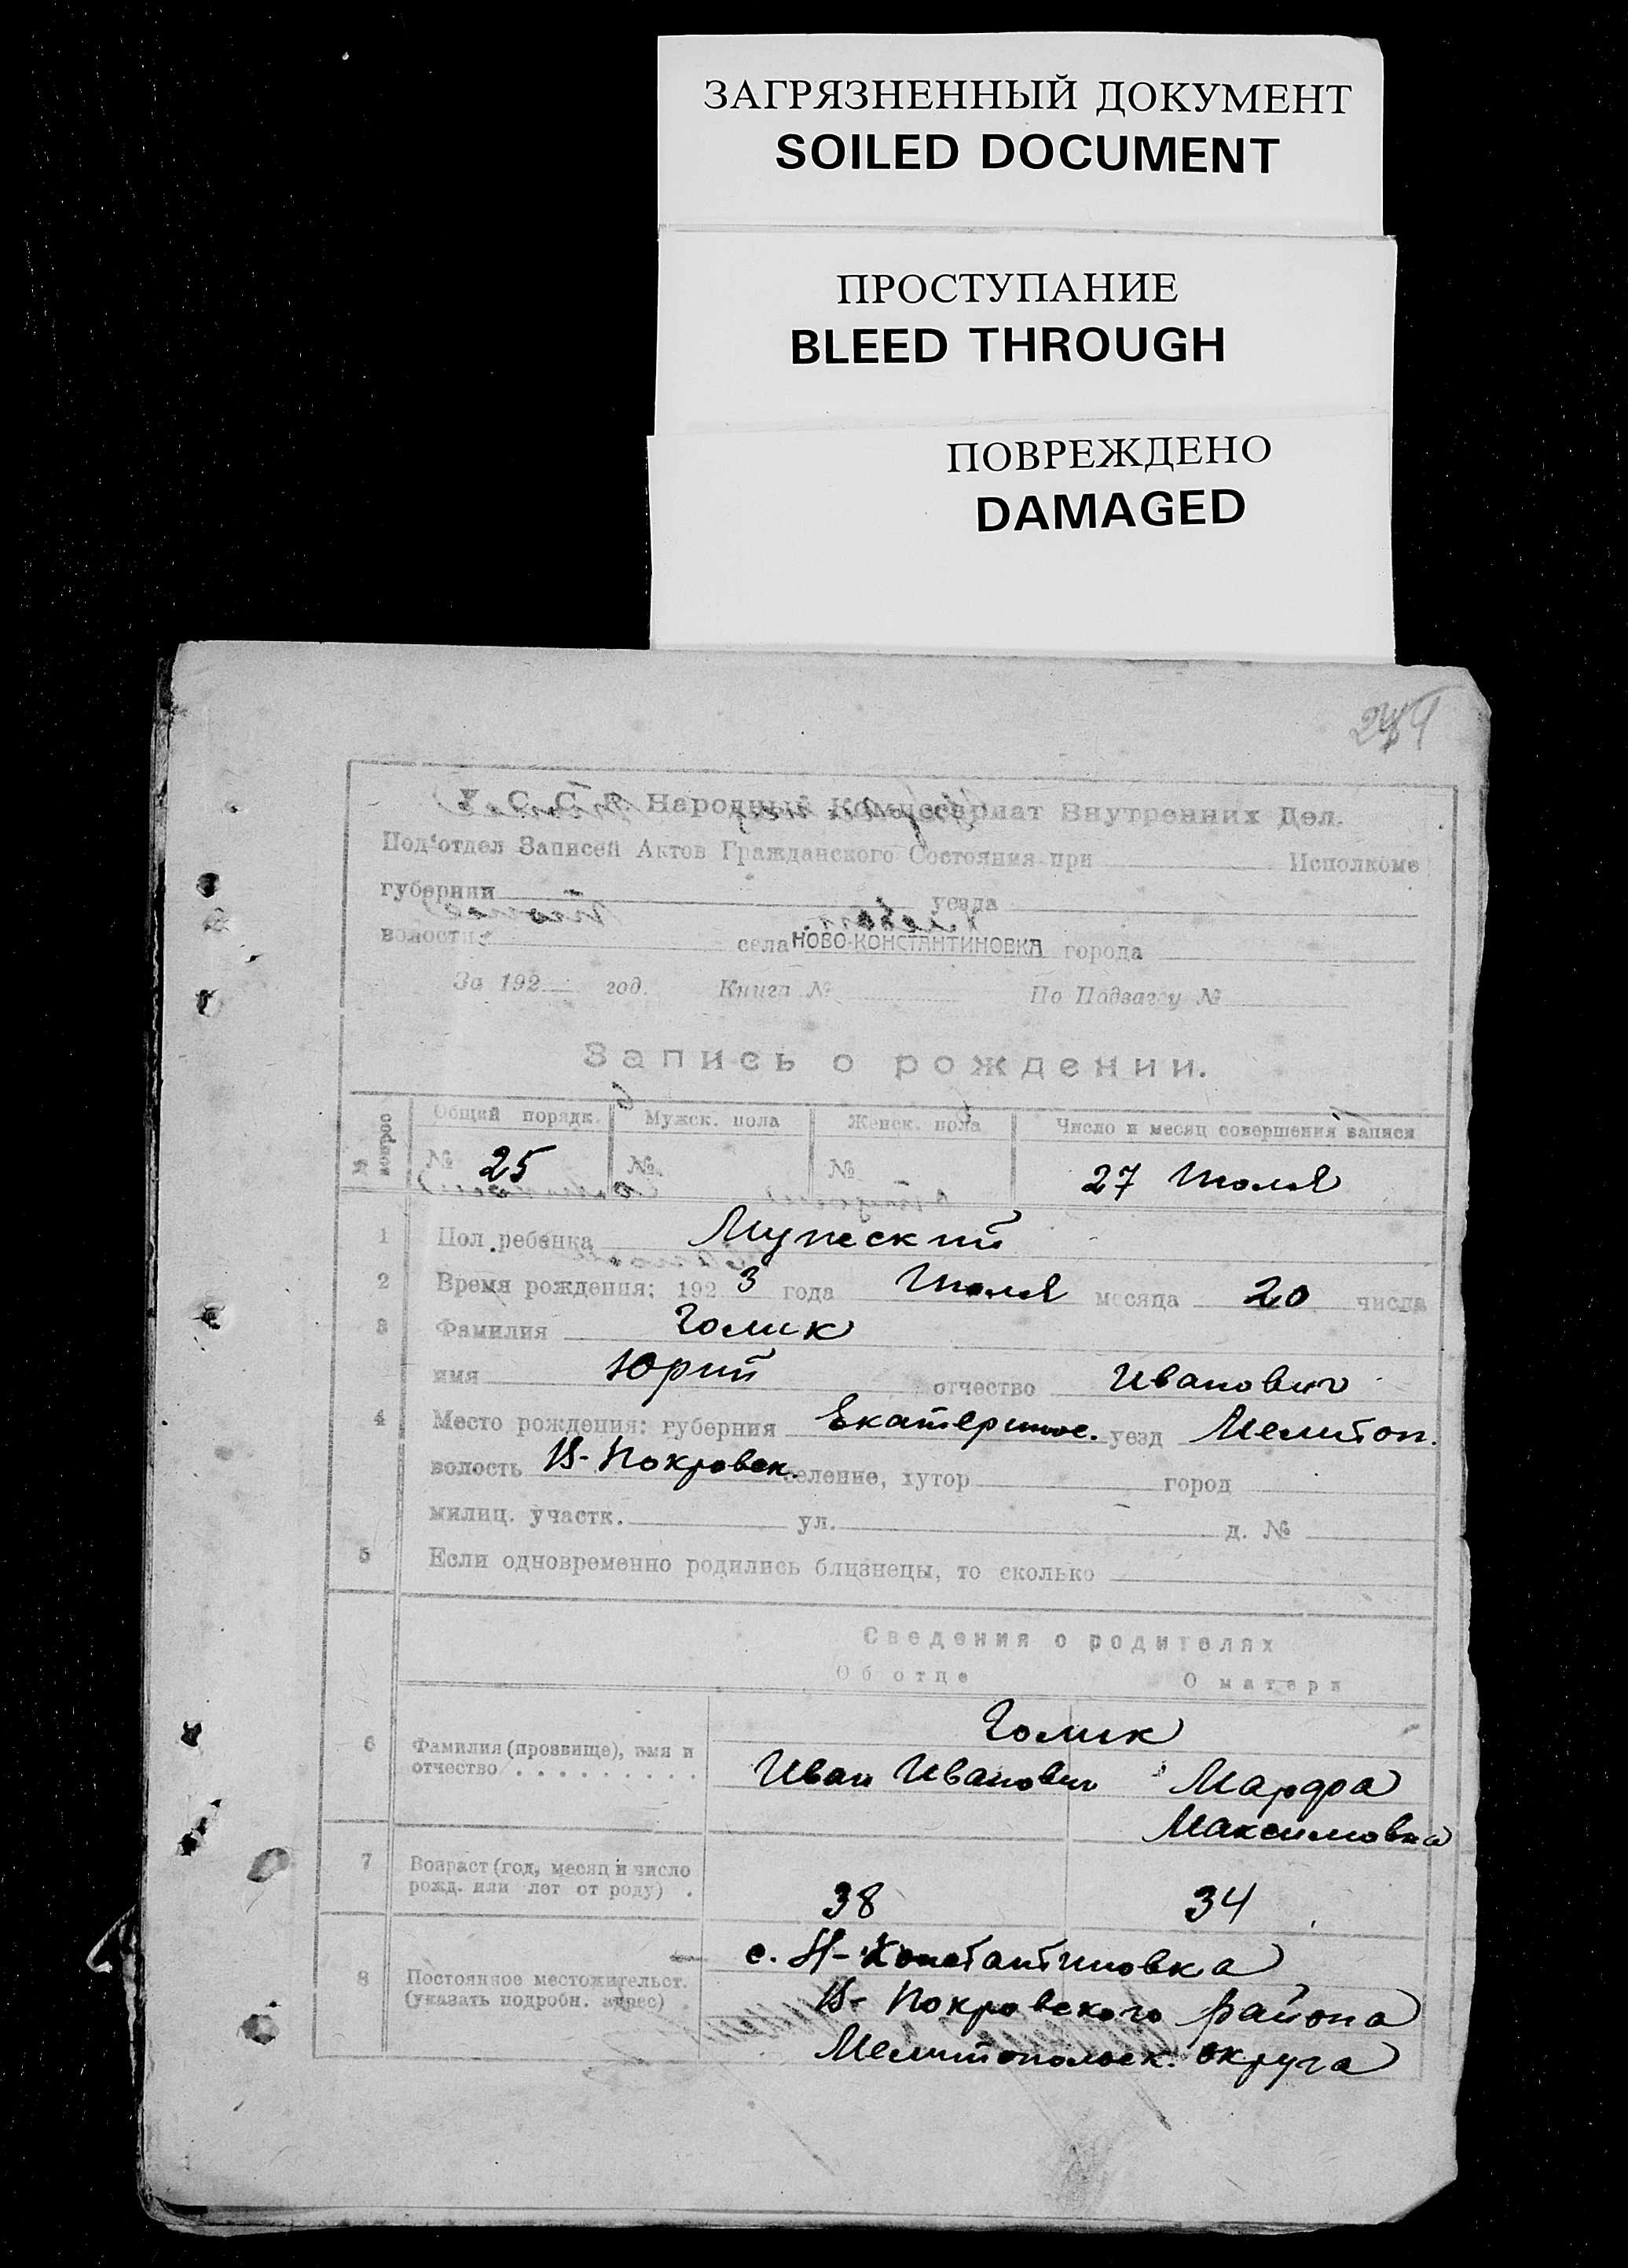 ЗАГРЯЗНЕННЫЙ ДОКУМЕНТ
SOILED DOCUMENT
ПРОСТУПАНИЕ
BLEED THROUGH
ПОВРЕЖДЕНО
DAMAGED
У С С Р. Народный Комиссариат Внутренних Дел.
Под'отдел Записей Актов Гражданского Состояния при Исполкоме
губернии уезда
волости села НОВО-КОНСТАНТИНОВКА города
За 192 год. Книга № По Подзагсу №
Запись о рождении.
№ вопрос Общий порядк. Мужск. пола Женск. пола Число и месяц совершения записи
№ 25 № № 27 Июля
1 Пол ребенка Мужеский
2 Время рождения: 192 3 года Июля месяца 20 числа
3 Фамилия Голик
имя Юрий отчество Иванович
4 Место рождения: губерния Екатеринос. уезд Мелитоп.
волость В-Покровск. селение, хутор город
милиц. участк. ул. д. №
5 Если одновременно родились близнецы, то сколько
Сведения о родителях
Об отце О матери
Голик
6 Фамилия (прозвище), имя и
отчество . . . . . . . . . Иван Иванович Марфа
Максимовна
7 Возраст (год, месяц и число
рожд. или лет от роду) . 38 34
с. Н-Константиновка
8 Постоянное местожительст.
(указать подробн. адрес) В-Покровского района
Мелитопольск. округа